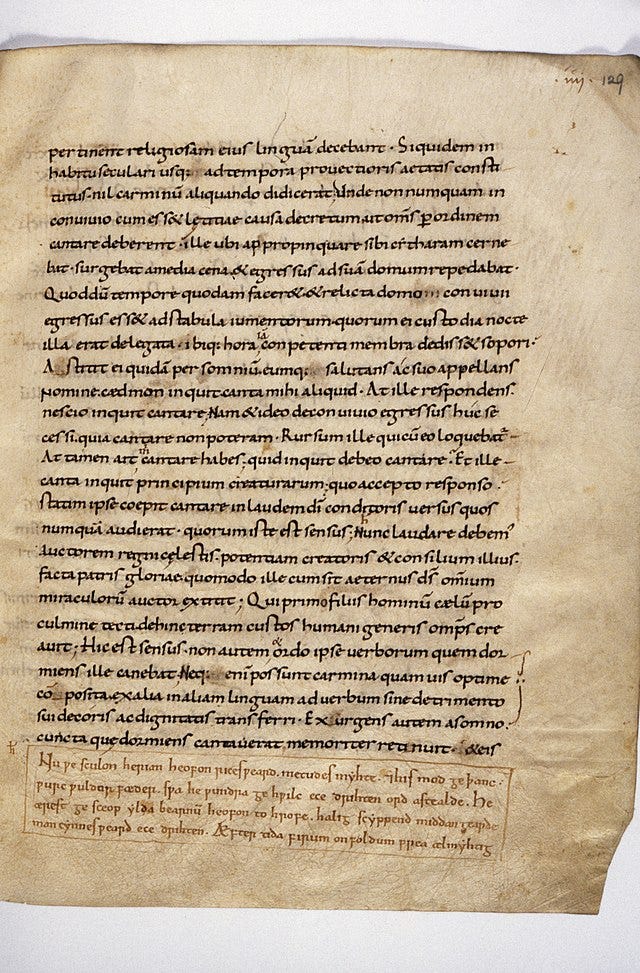 ·iiij· 129
pertinent religiosam eius linguā decebant · Siquidem in
habitu seculari usq; ad tempora prouectioris aetatis consti
tutus nil carminū aliquando didicerat; Unde non numquam in
conuiuio cum ess& letitiae causa decretum ut om̅s p̲ ordinem
cantare deberent · ille ubi appropinquare sibi citharam cerne
bat · surgebat a media cena & egressus ad suā domum repedabat ·
Quod dū tempore quodam facer& & relicta domo conuiuii
egressus ess& ad stabula iumentorum quorum ei custodia nocte
illa erat delegata · ibiq; hora conpetenti membra dediss& sopori ·
Astitit ei quidā per somniū eumq; salutans ac suo appellans
nomine · cædmon inquit canta mihi aliquid · At ille respondens ·
nescio inquit cantare; Nam & ideo de conuiuio egressus huc se
cessi, quia cantare non poteram · Rursum ille qui cū eo loquebat̅
At tamen ait cantare habes; quid inquit debeo cantare · Et ille
canta inquit principium creaturarum; quo accepto responso ·
statim ipse coepit cantare in laudem dī conditoris uersus quos
numquā audierat · quorum iste est sensus; Nunc laudare debem'
auctorem regni cęlestis · potentiam creatoris & consilium illius ·
facta patris gloriae · quomodo ille cum sit aeternus d̅s omnium
miraculorū auctor extitit; Qui primo filiis hominū cælū pro
culmine tecti dehinc terram custos humani generis omp̅s cre
auit; Hic est sensus · non autem ordo ipse uerborum quem dor
miens ille canebat; Neq; eni̅ possunt carmina quamuis optime
co posita, ex alia in aliam linguam ad uerbum sine detrimento
sui decoris ac dignitatis transferri · Exurgens autem a somno ·
cuncta quę dormiens cantauerat, memoriter retinuit · & eis
Nu ƿe sculon herian heofon rices ƿeard, metudes myhte · ⁊ his mod geþanc ·
ƿurc ƿuldor fæder · sƿa he ƿundra gehƿilc ece drihten ord astealde · He
ærest gesceop ylda bearnū heofon to hrofe · halig scyppend middangearde
mancynnes ƿeard ece drihten · Æfter tida firum on foldum frea ælmyhtig